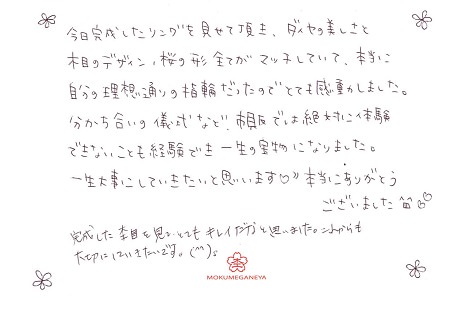 今日完成したリングを見せて頂き、ダイヤの美しさと
木目のデザイン、桜の形全てがマッチしていて、本当に
自分の理想通りの指輪だったのでとても感動しました。
分かち合いの儀式など、市販では絶対に体験
できないことも経験でき一生の宝物になりました。
一生大事にしていきたいと思います♡〃本当にありがとう
ございました^^
完成した木目を見て、とてもキレイだなと思いました。これからも
大切にしていきたいです。(^^)
MOKUMEGANEYA